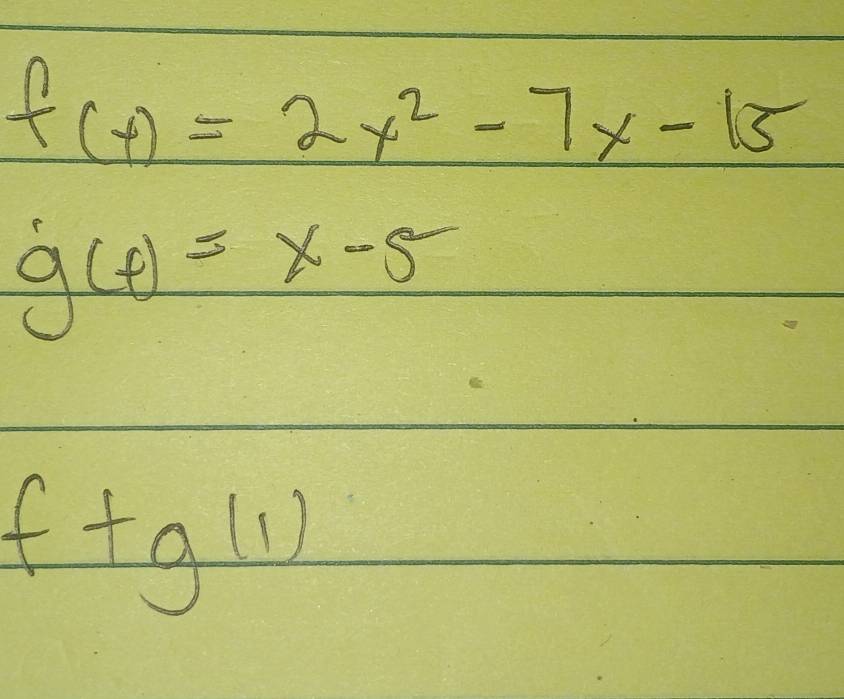 f(x) = 2x² - 7x - 15
g(x) = x - 5
f + g(1)